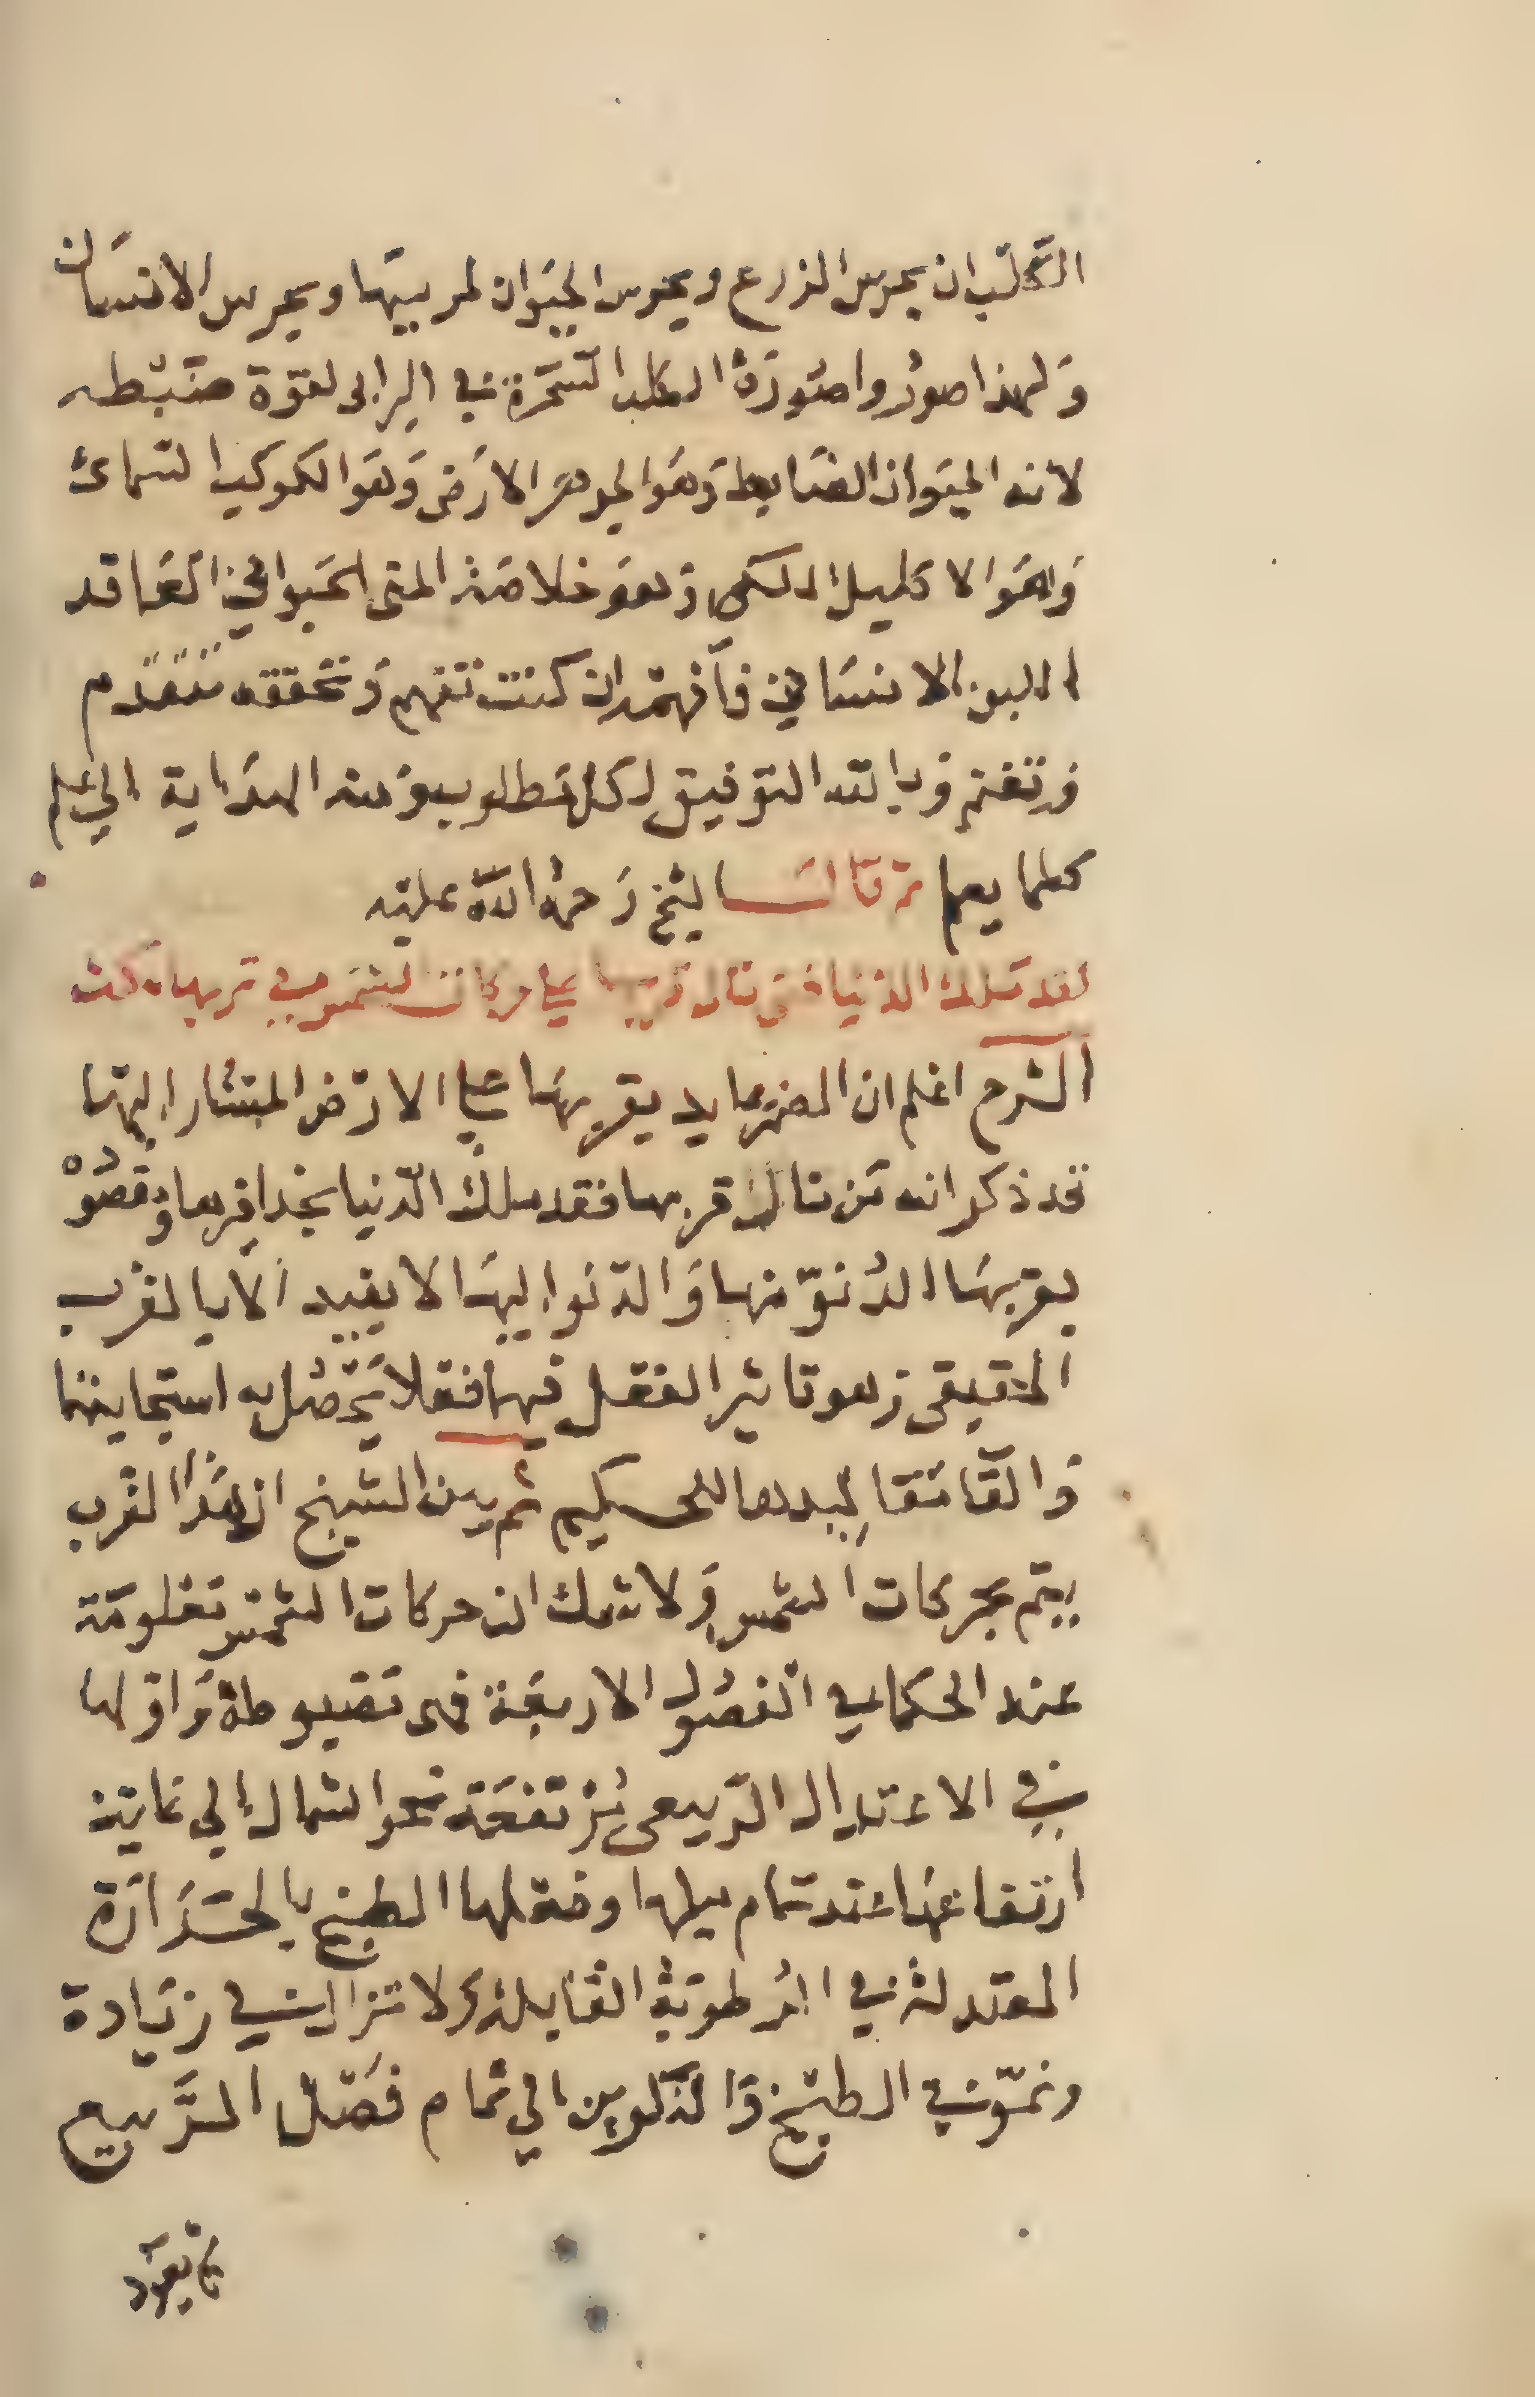 الكلب ان يحرس الزرع ويحرس الحيوان لمربيها ويحرس الانسان
ولهذا صوروا صورة الكلب السحرة في البرابى لقوة ضبطه
لانه الحيوان الضابط وهو الجوهر الارضى وهو الكوكب السمائ
وهو الاكليل الملكى وهو خلاصة المنى الحيواني العاقد
اللبن الانسانى فافهم ان كنت تفهم وتحققه متقدم
وتغنم وبالله التوفيق لكل مطلوب ومنه الهداية الي علم
كلما يعلم ثم قال الشيخ رحمة الله عليه
لقد ملك الدنيا فتى نال قربها علي حركات الشمس في تربها مكث
الشرح اعلم ان الضمير عايد بقربها علي الارض المشار اليها
قد ذكر انه من نال قربها فقد ملك الدنيا بحذافيرها ومقصوده
بقربها الدنو منها والدنو اليها لا يفيد الا بالقرب
الحقيقى وهو تاثير الفعل فيها فعلا يحصل به استجابتها
والقا مقاليدها للحكيم ثم بين الشيخ ان هذا القرب
يتم بحركات الشمس ولا شك ان حركات الشمس معلومة
عند الحكما في الفصول الاربعة فهى مضبوطة واولها
في الاعتدال الربيعى مرتفعة نحو الشمال الي غاية
ارتفاعها عند تمام ميلها وفعلها الطبخ بالحرارة
المعتدلة في الرطوبة القابلة ولا تزال في زيادة
ونمو في الطبخ والتكوين الي تمام فصل الربيع
ثم يعود